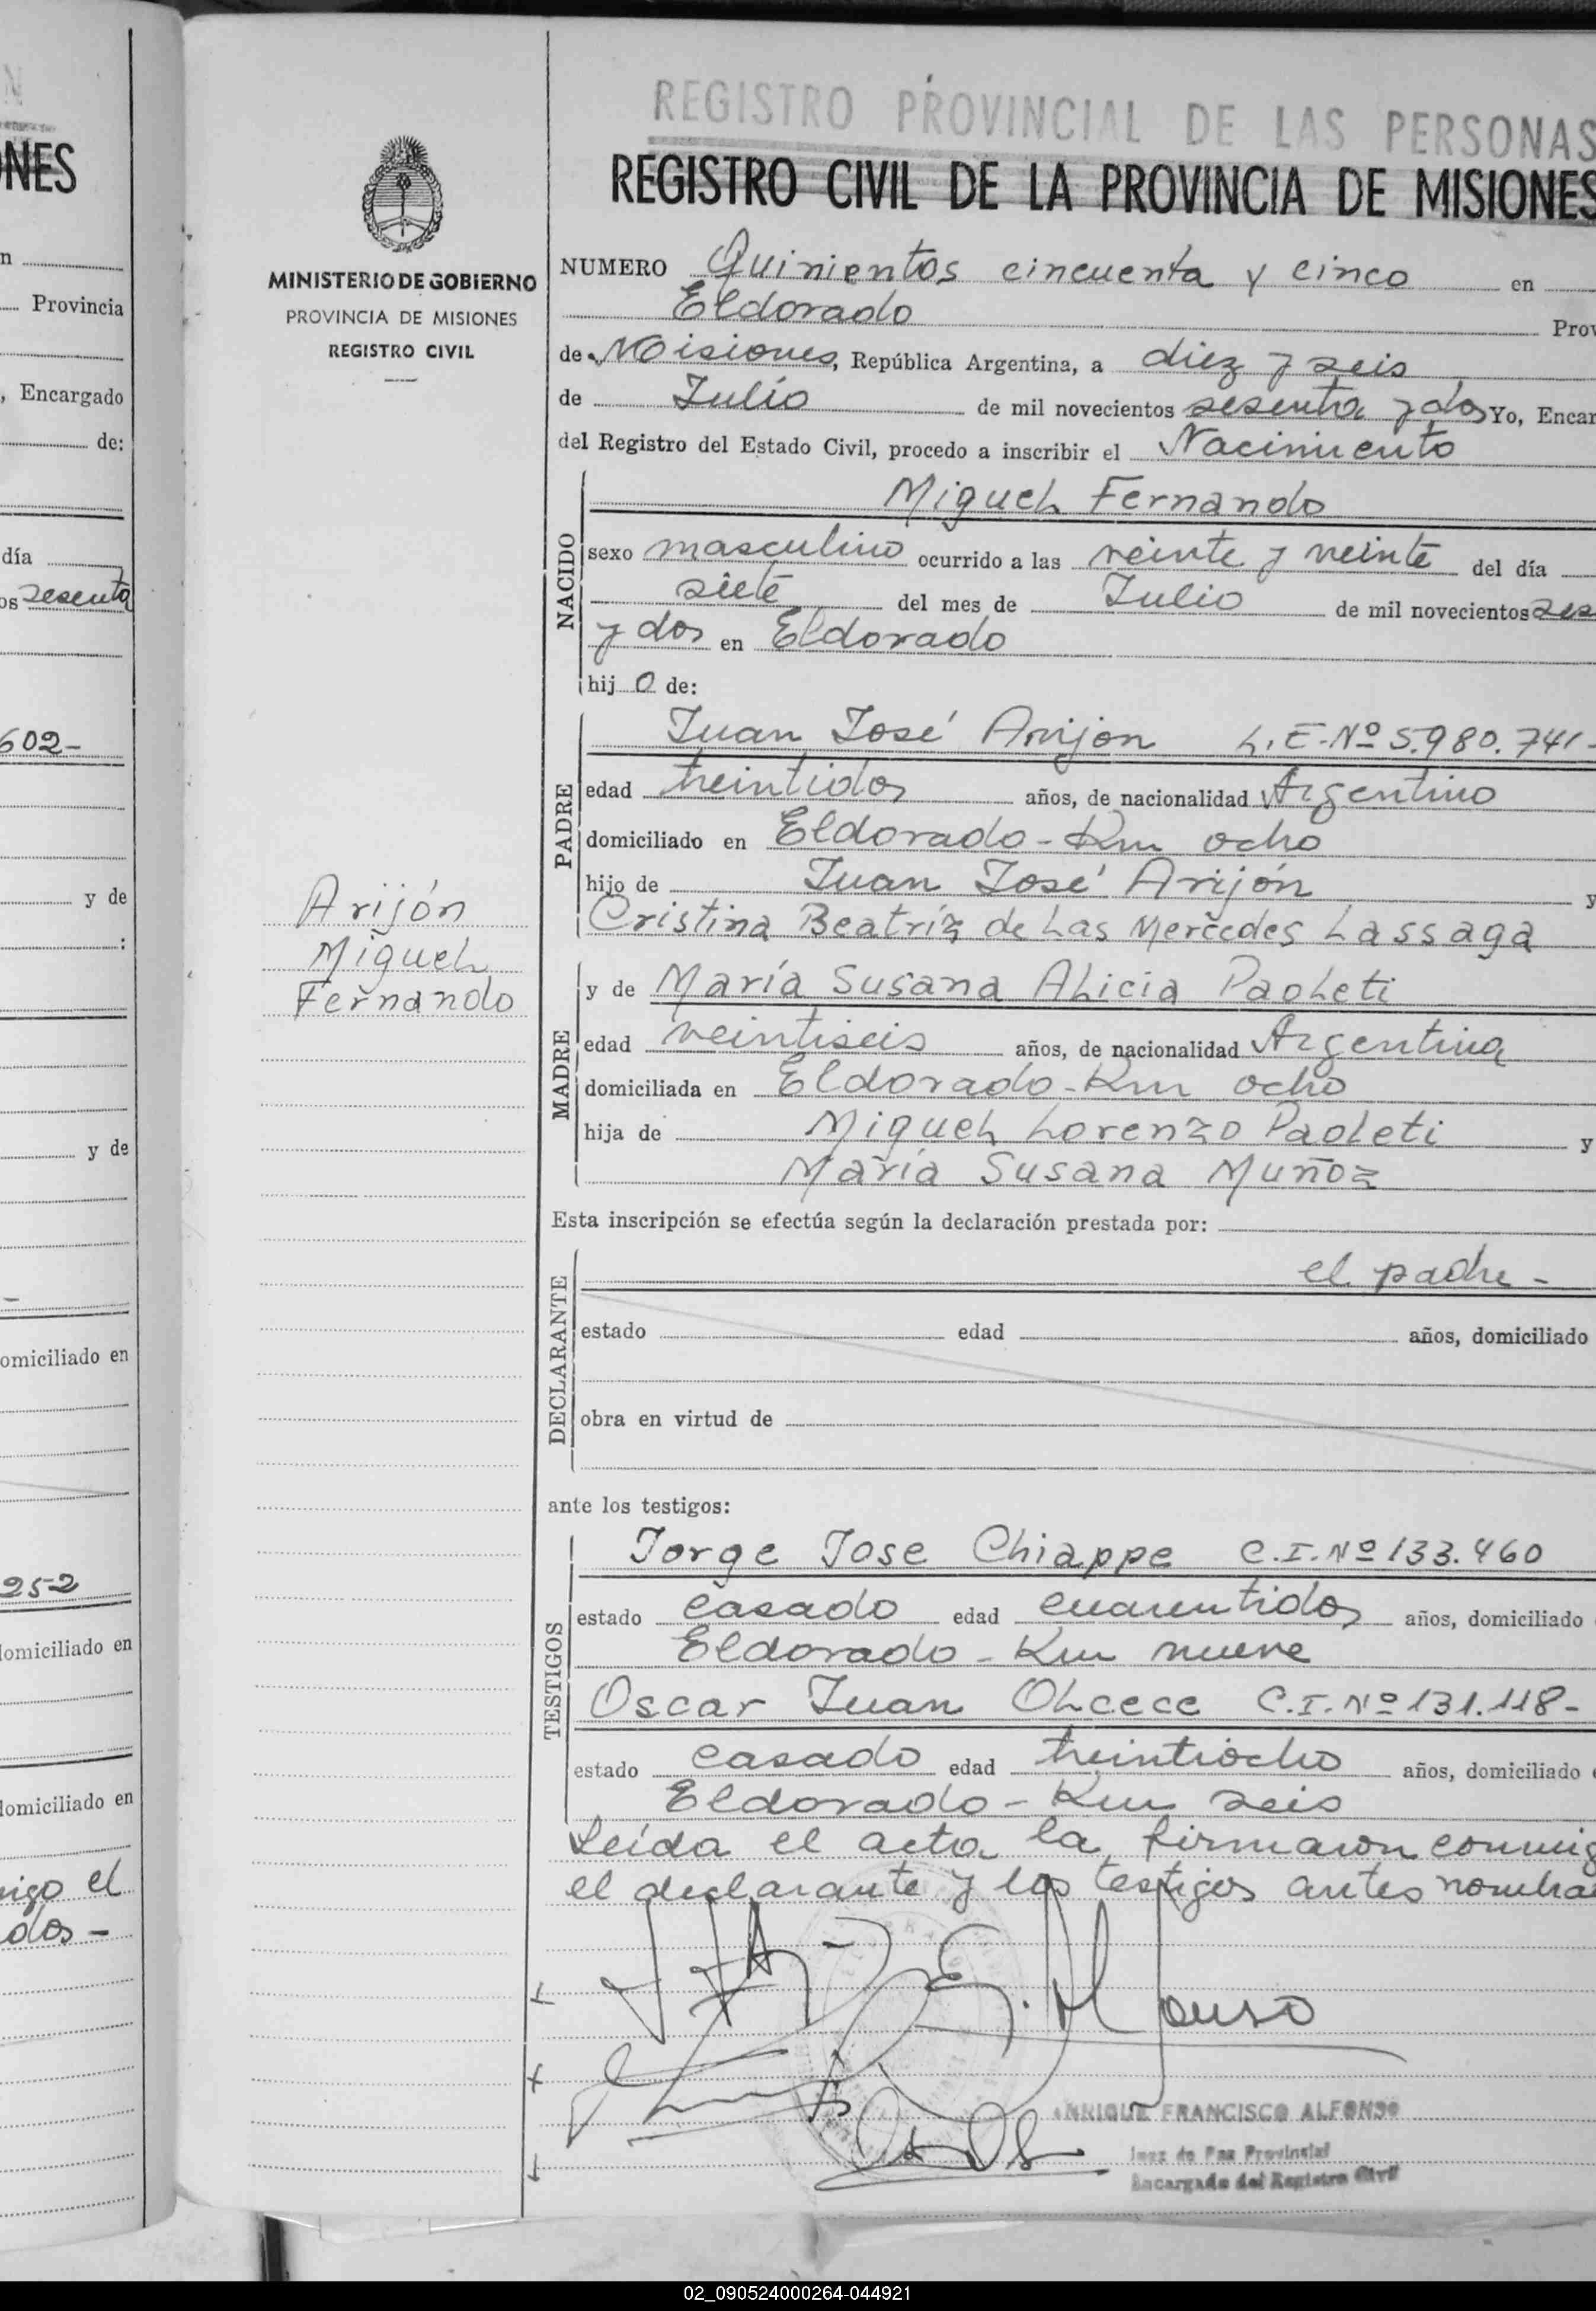 N
ONES
n
Provincia
, Encargado
de:
día
os sesenta
602-
y de
:
y de
-
omiciliado en
252
domiciliado en
domiciliado en
migo el
dos -
MINISTERIO DE GOBIERNO
PROVINCIA DE MISIONES
REGISTRO CIVIL
Arijón
Miguel
Fernando
REGISTRO PROVINCIAL DE LAS PERSONAS
REGISTRO CIVIL DE LA PROVINCIA DE MISIONES
NUMERO Quinientos cincuenta y cinco en
Eldorado Prov
de Misiones, República Argentina, a diez y seis
de Julio de mil novecientos sesenta y dos Yo, Encar
del Registro del Estado Civil, procedo a inscribir el Nacimiento
NACIDO
Miguel Fernando
sexo masculino ocurrido a las veinte y veinte del día
siete del mes de Julio de mil novecientos ses
y dos en Eldorado
hijo de:
PADRE
Juan José Arijon L.E-Nº 5.980.741-
edad treintidos años, de nacionalidad Argentino
domiciliado en Eldorado - Km ocho
hijo de Juan José Arijón y
Cristina Beatríz de Las Mercedes Lassaga
MADRE
y de María Susana Alicia Paoleti
edad veintiseis años, de nacionalidad Argentina
domiciliada en Eldorado - Km ocho
hija de Miguel Lorenzo Paoleti y
María Susana Muñoz
Esta inscripción se efectúa según la declaración prestada por:
DECLARANTE
el padre -
estado edad años, domiciliado
obra en virtud de
ante los testigos:
TESTIGOS
Jorge Jose Chiappe C.I.Nº 133.460
estado casado edad cuarentidos años, domiciliado
Eldorado - Km nueve
Oscar Juan Olcece C.I.Nº 131.118-
estado casado edad treintiocho años, domiciliado
Eldorado - Km seis
Leída el acta la firmaron conmig
el declarante y los testigos antes nombra
ENRIQUE FRANCISCO ALFONSO
Juez de Paz Provincial
Encargado del Registro Civil
02_090524000264-044921